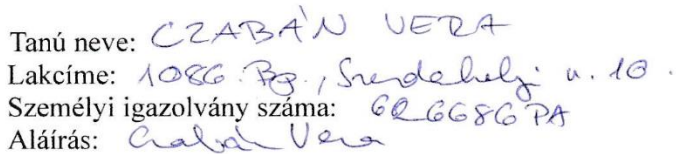 Tanú neve: CZABÁN VERA
Lakcíme: 1086. Bp., Szerdahelyi u. 10.
Személyi igazolvány száma: 626686PA
Aláírás: Czabán Vera